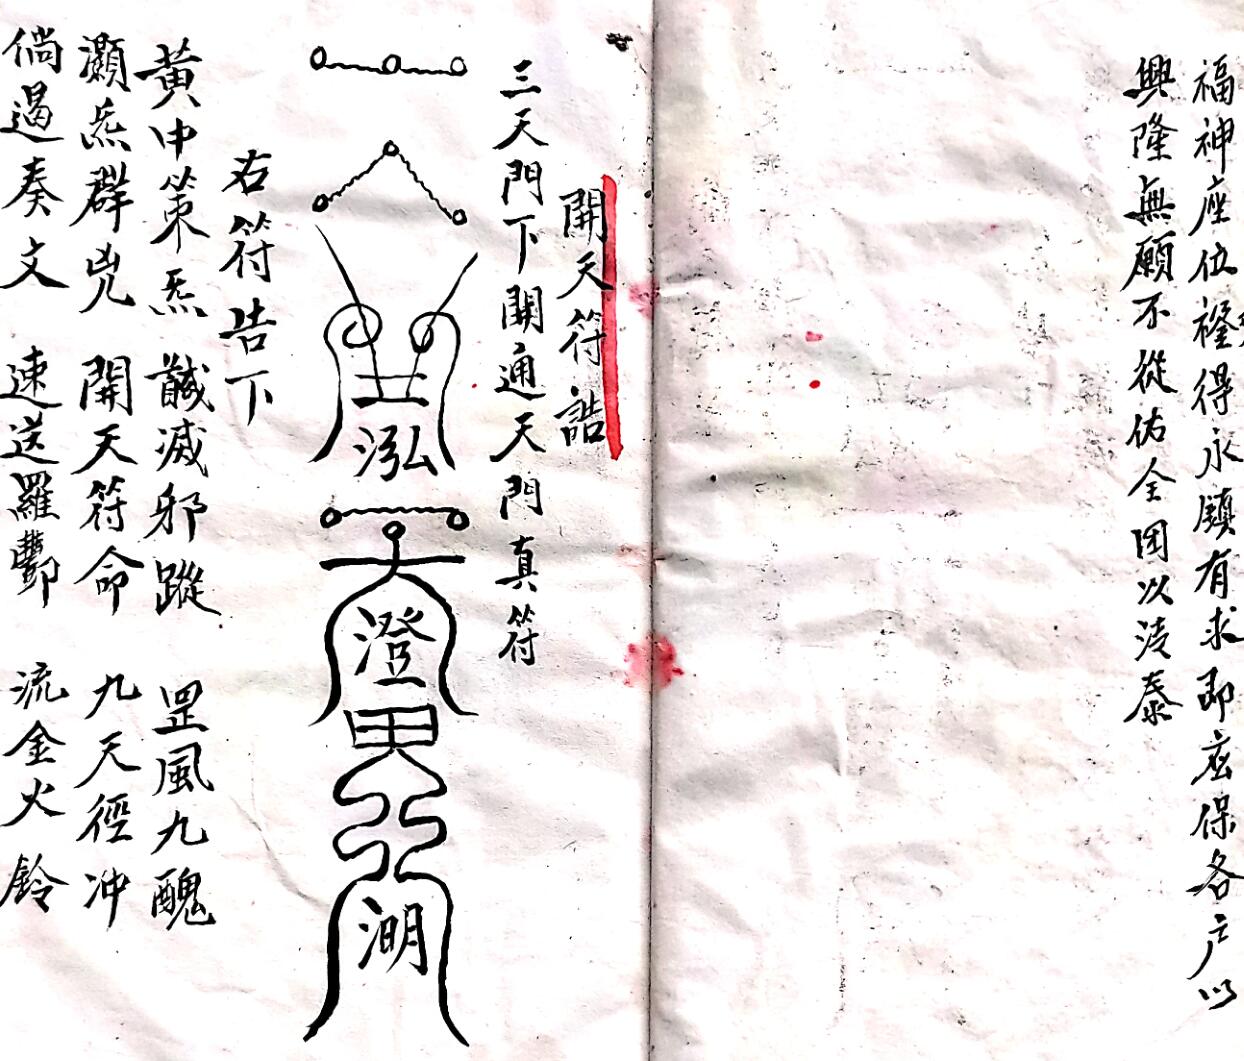 福神座位褷得永鎮有求即應保各户以
興隆無願不從佑全因以淩泰
開天符誥
三天門下開通天門真符
泓
澄
澖
右符告下
黄中策炁 馘滅邪蹤 罡風九醜
灝炁群兇 開天符命 九天徑冲
倘遏奏文 速送羅酆 流金火鈴